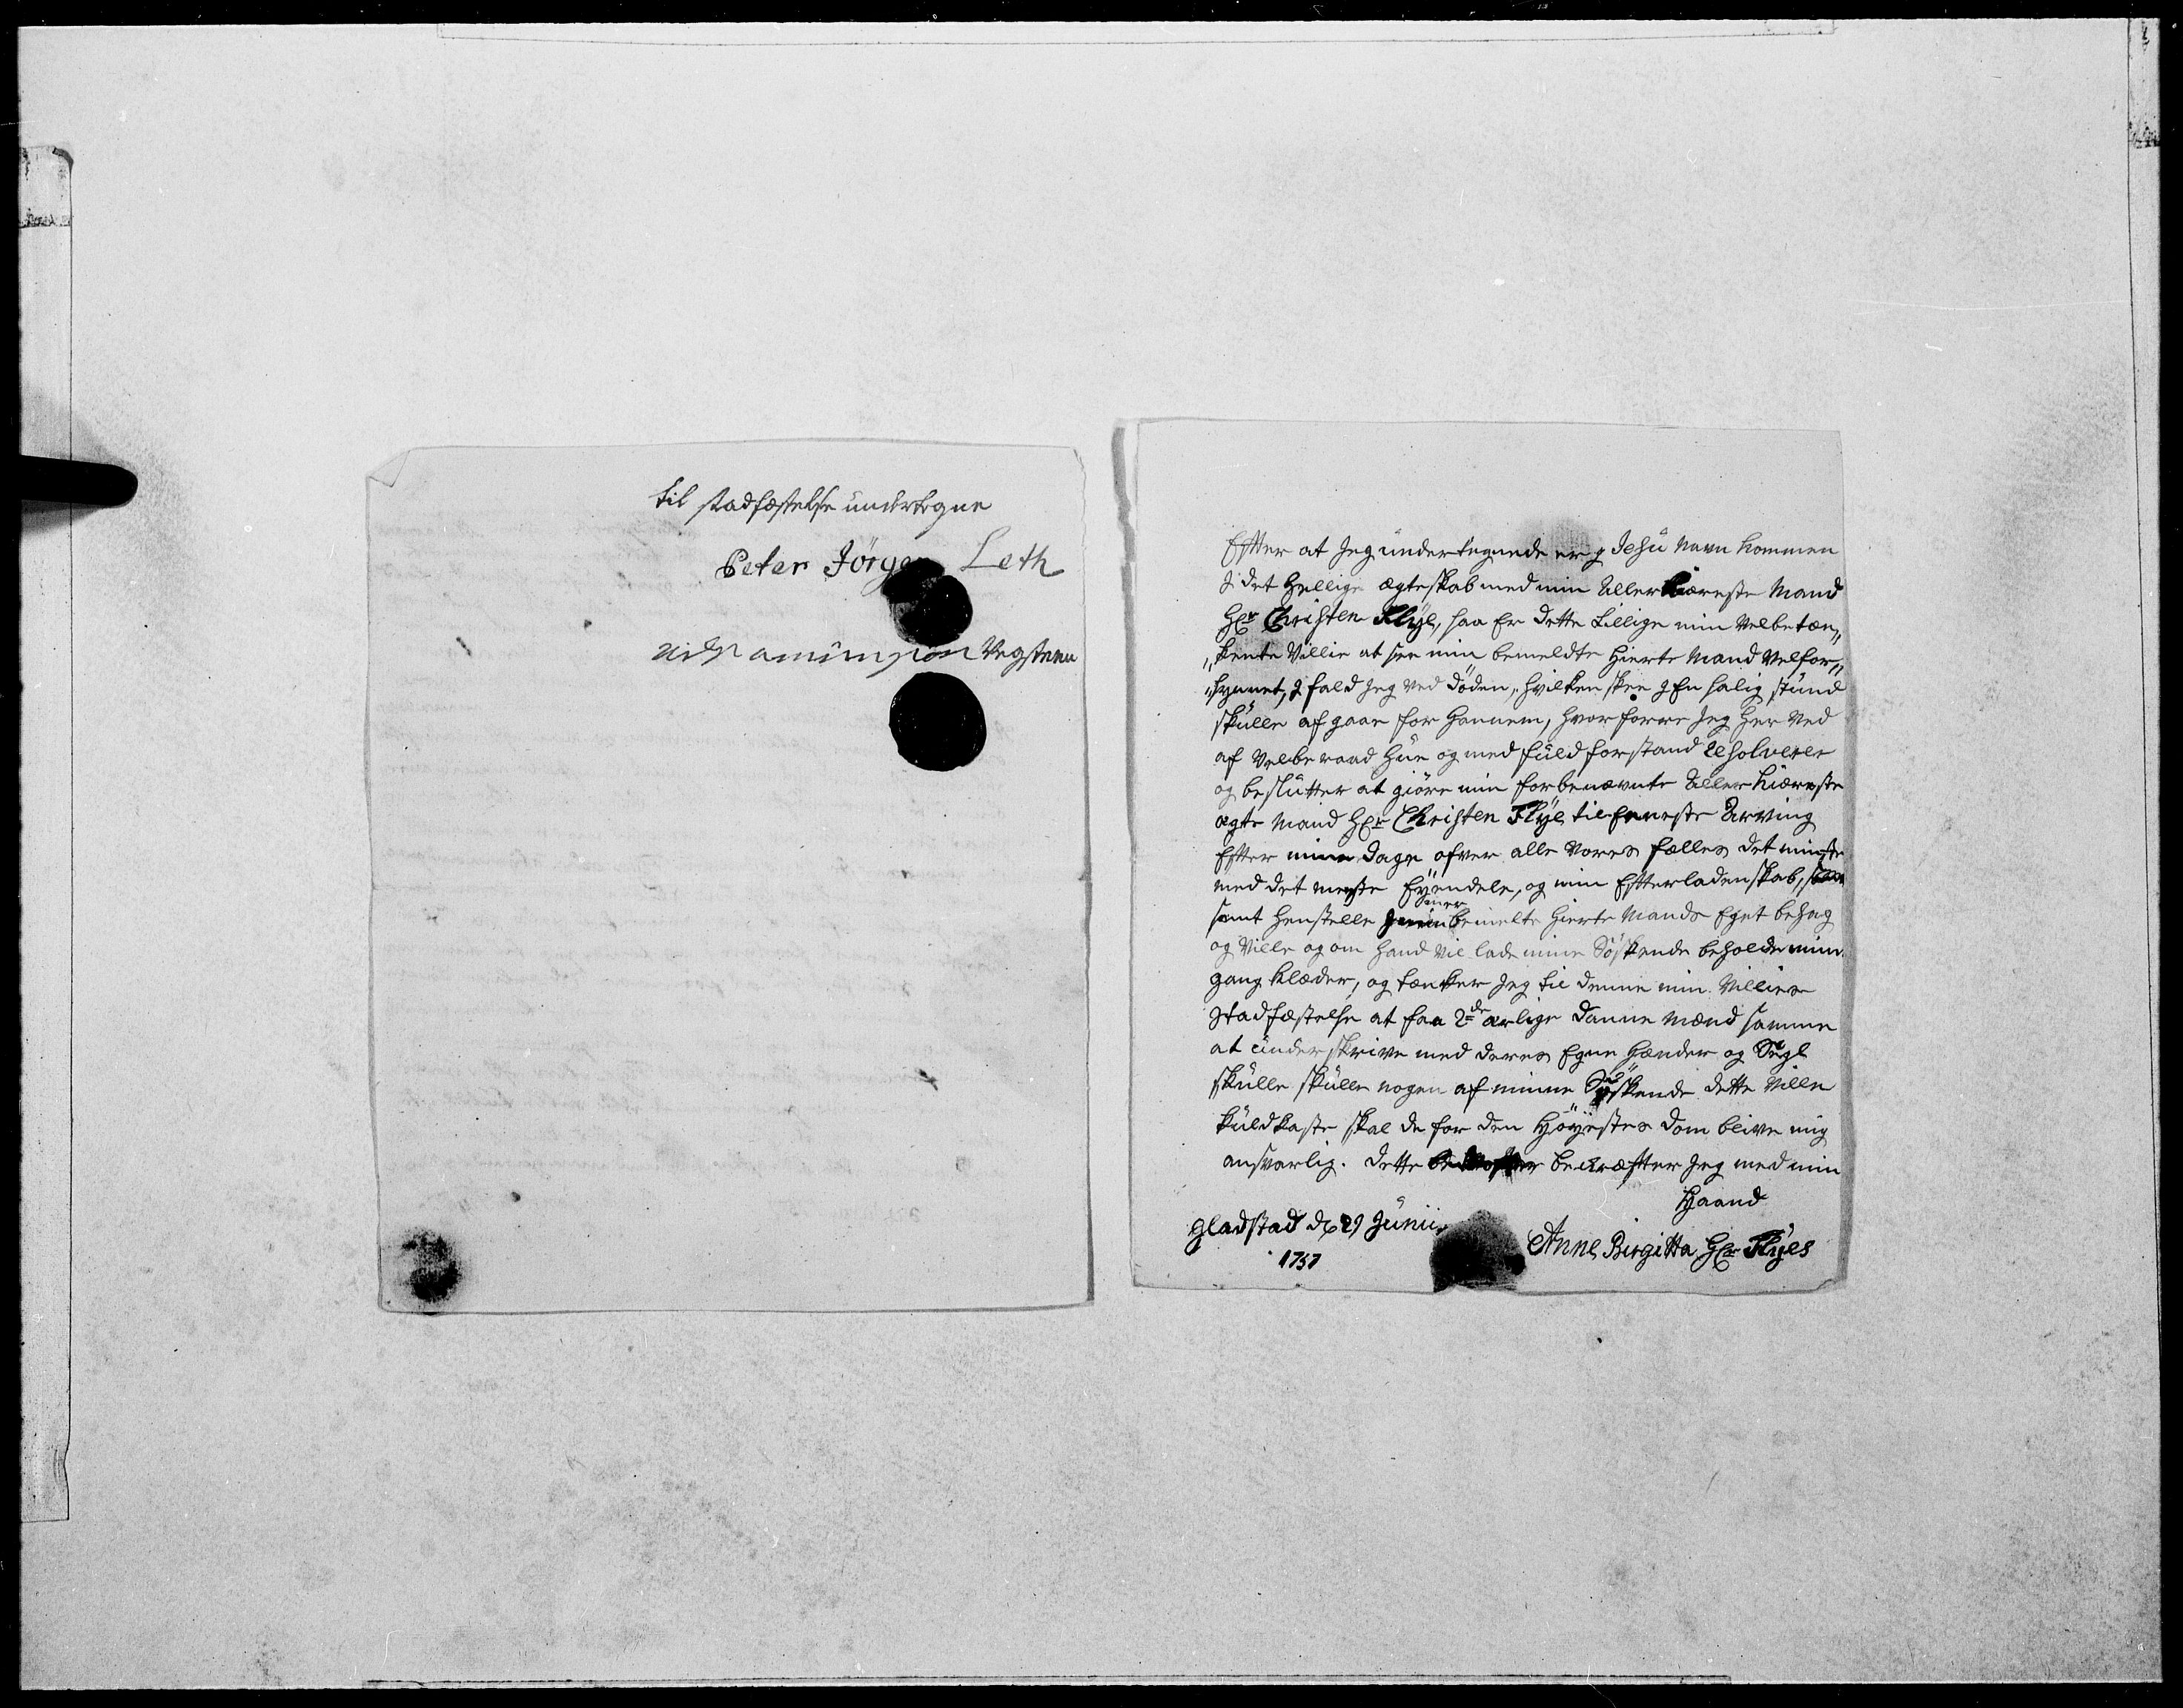 til stadfæstelse undertegne
Peter Jörgen Leth
Vegstenn
Efter at Jeg undertegnede er J Jesu Navn kommen
J det Hellige ægteskab med min Allerkiæreste Mand
Hr Christen Flÿe, saa Er dette tillige min velbetæn„
„kente Villie at see min bemeldte Hierte Mand velfor„
„synnet, J fald Jeg ved döden, hvilken skee J En salig stund
skulle afgaae for hannem, hvorforre Jeg her ved
af velberaad Hue og med fuld forstand Resolverer
og beslutter at giöre min forbenævnte Aller kiæreste
ægte Mand Hr Christen Flÿe til Eeneste Arving
Efter mine dage ofver alle vores fælles det minste
med det meste Eÿendele, og min Efterladenskab,
samt henstelle min bemelte Hierte Mands Eget behag
og Ville og om hand vil lade mine Söskende beholde mine
gang klæder, og tænker Jeg til denne min Villies
Stadfæstelse at faa 2de ærlige danne mænd samme
at underskrive med deres Egne Hænder og Segl
skulle skulle nogen af minne Söskende dette ville
kuldkaste skal de for den Höÿestes dom blive mig
ansvarlig. dette becræfter Jeg med min
Haand
Gladstad d 29 Junii
1757
Anne Birgitta Hr Flÿes